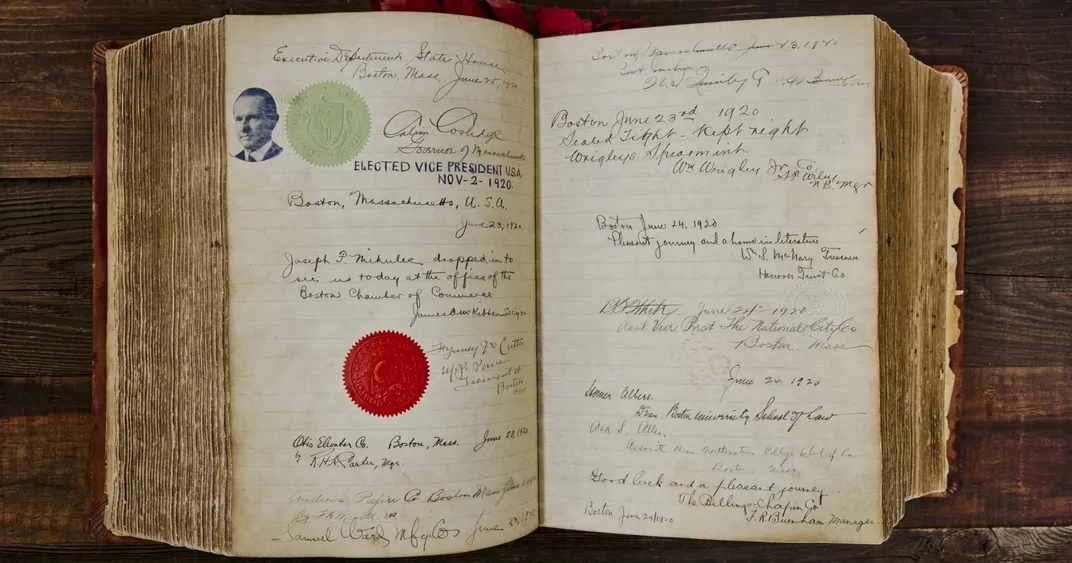 Executive Department, State House,
Boston, Mass. June 25, 1920
Calvin Coolidge
Governor of Massachusetts
ELECTED VICE PRESIDENT U.S.A.
NOV-2-1920.
Boston, Massachusetts, U.S.A.
June 23, 1920
Joseph F. Mikulec dropped in to
see us today at the office of the
Boston Chamber of Commerce
James A. McKibben Secy
Boston
Otis Elevator Co. Boston, Mass. June 23, 1920
by R.H. Parker, Mgr.
Andrews Paper Co Boston Mass June
Samuel Ward Mfg Co June 1920
Boston, Massachusetts June 23, 1920
Boston June 23rd 1920
Sealed Tight - Kept right
Wrigleys Spearmint.
Wm Wrigley Jr. Co
N.E. Mgr
Boston June 24, 1920
Pleasant journey and a home in literature
Wm S. McNary Treasurer
Hanover Trust Co.
June 24th 1920
Asst Vice Prest The National City Co
Boston Mass
June 24, 1920
Homer Albers
Dean Boston University School of Law
Asa S. Allen,
Boston Mass.
Good luck and a pleasant journey.
The Billings-Chapin Co
Boston June 24/1920 F.R. Burnham Manager